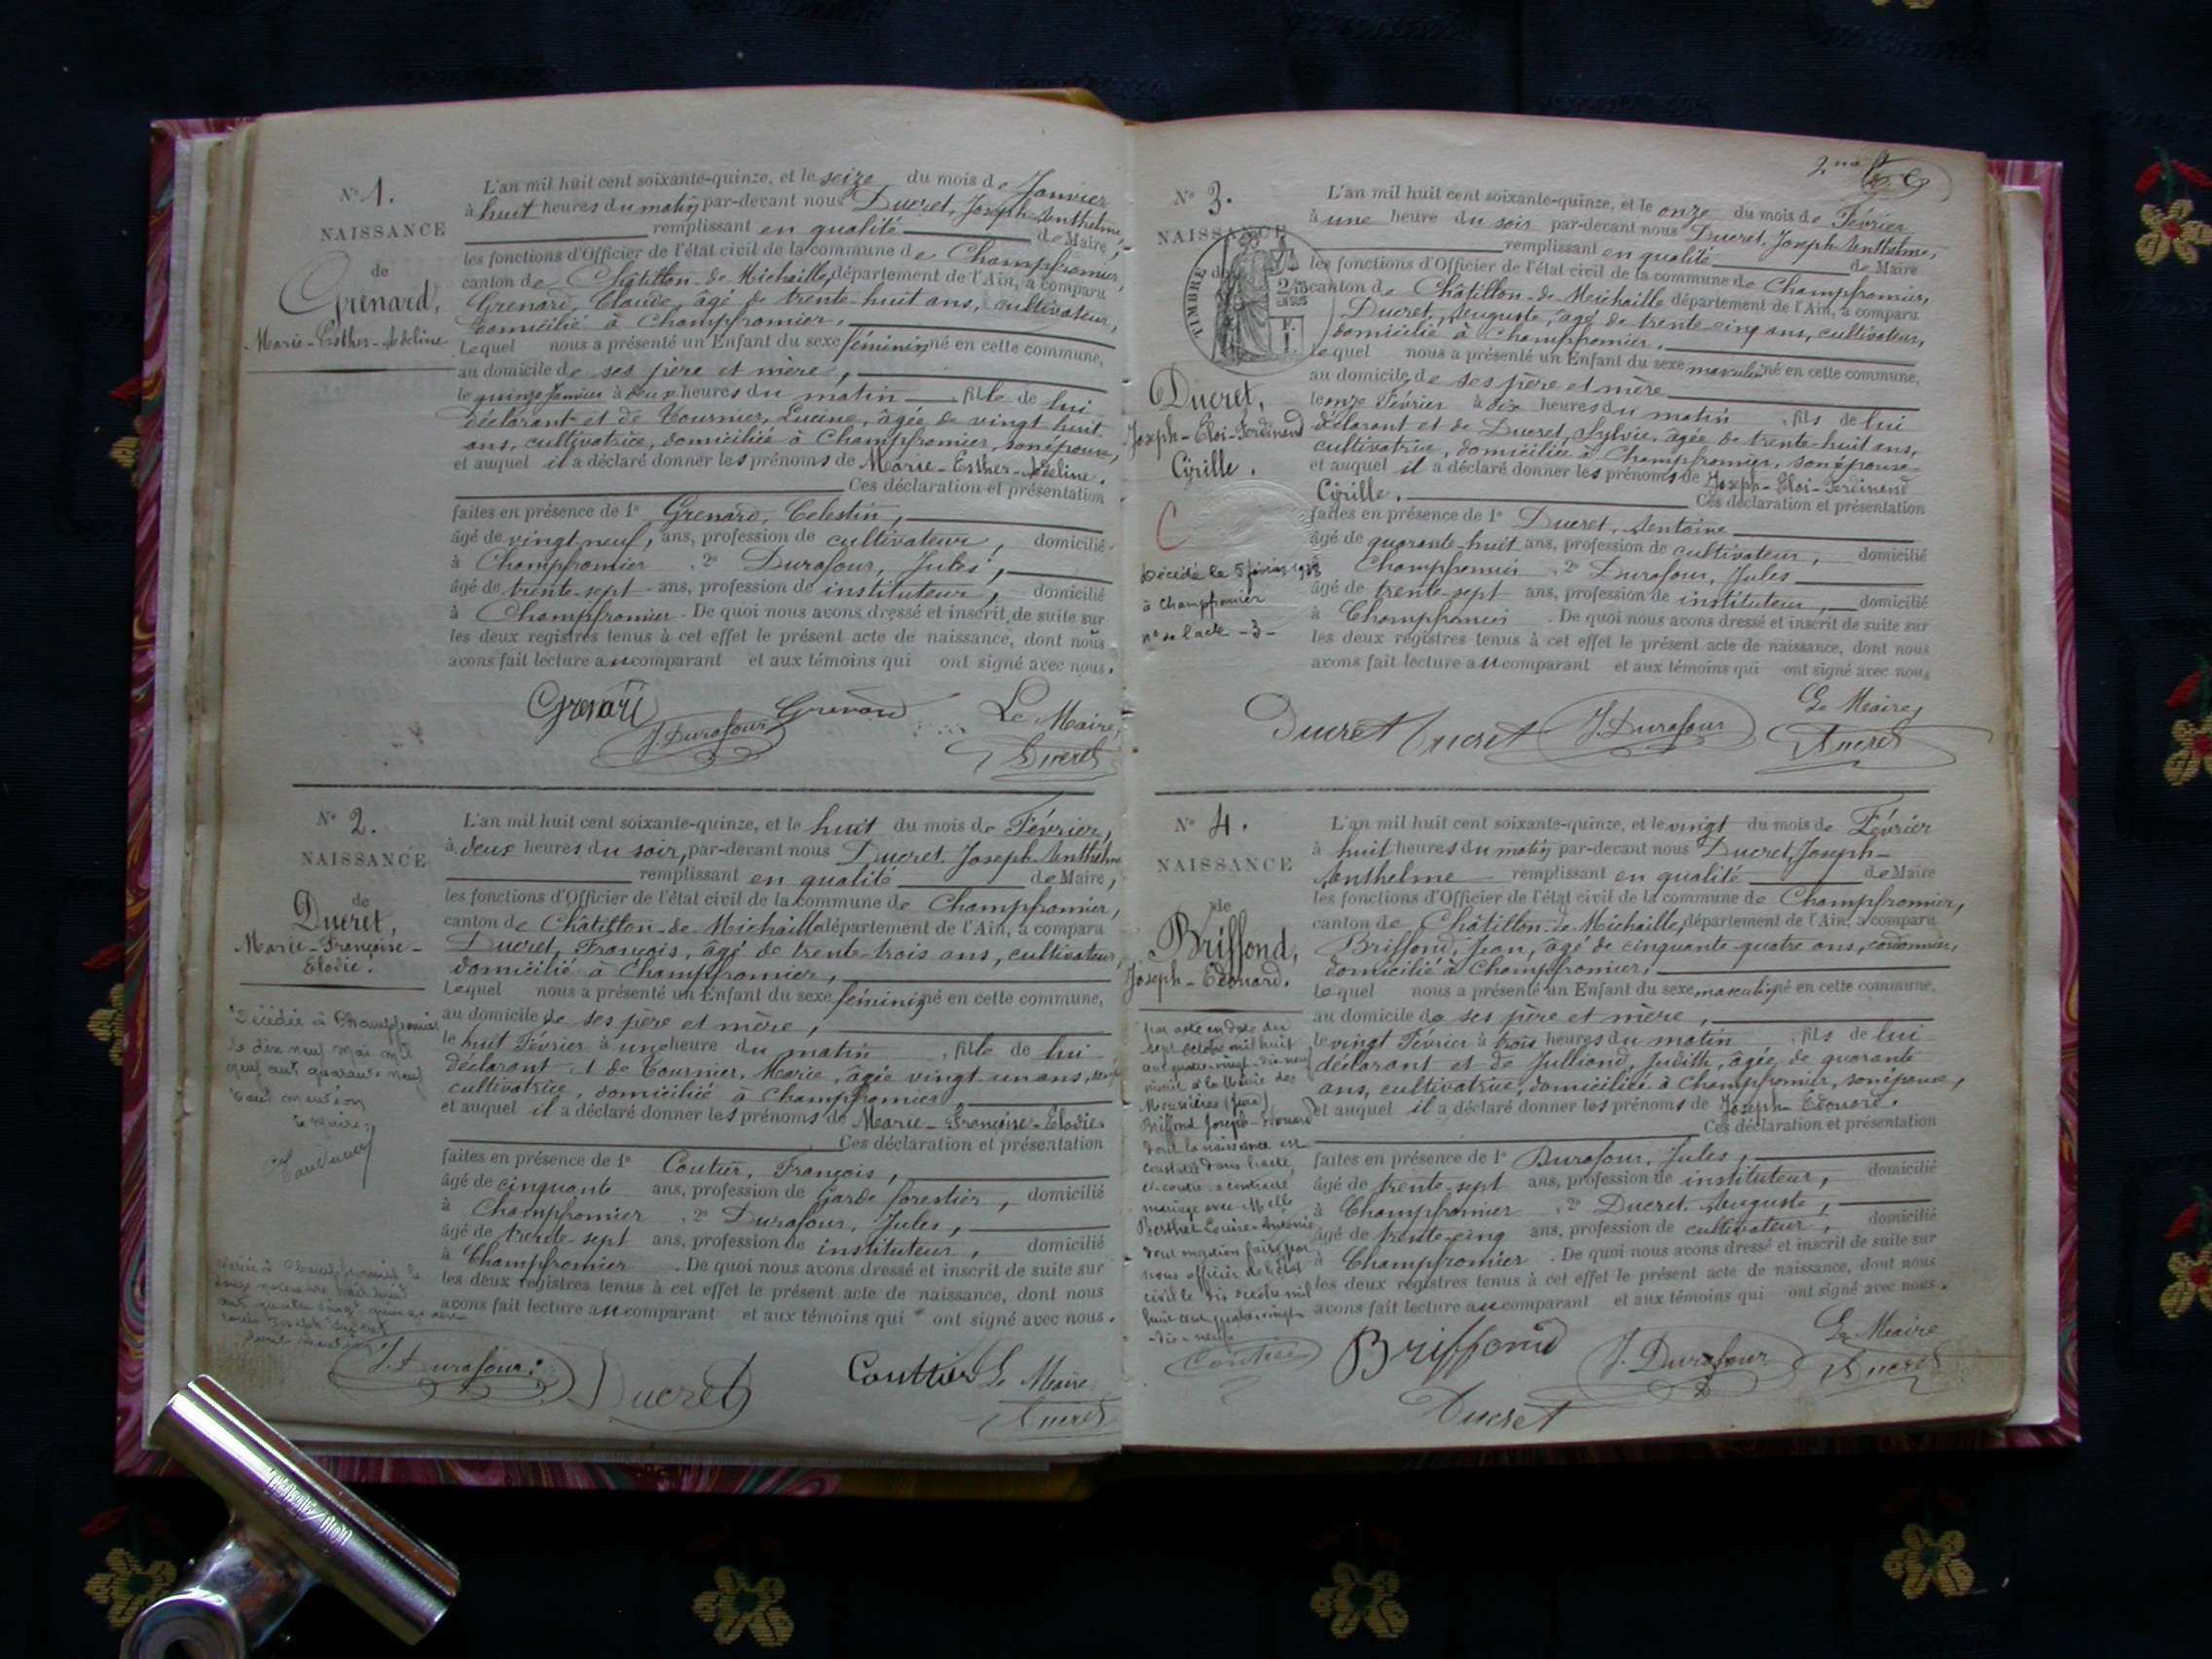 N° 1.
NAISSANCE
de
Grenard,
Marie-Esther-Adeline
L'an mil huit cent soixante-quinze, et le seize du mois de Janvier
à huit heures du matin par-devant nous Ducret, Joseph Anthelme,
remplissant en qualité de Maire,
les fonctions d'Officier de l'état civil de la commune de Champfromier,
canton de Châtillon-de-Michaille, département de l'Ain, a comparu
Grenard, Claude, âgé de trente-huit ans, cultivateur,
domicilié à Champfromier,
Lequel nous a présenté un Enfant du sexe féminin né en cette commune,
au domicile de ses père et mère,
le quinze Janvier à deux heures du matin fille de lui
déclarant et de Tournier, Lucine, âgée de vingt huit
ans, cultivatrice, domiciliée à Champfromier, son épouse,
et auquel il a déclaré donner les prénoms de Marie-Esther-Adeline.
Ces déclaration et présentation
faites en présence de 1° Grenard, Celestin,
âgé de vingt neuf, ans, profession de cultivateur, domicilié
à Champfromier , 2° Durafour, Jules,
âgé de trente-sept ans, profession de instituteur, domicilié
à Champfromier. De quoi nous avons dressé et inscrit de suite sur
les deux registres tenus à cet effet le présent acte de naissance, dont nous
avons fait lecture au comparant et aux témoins qui ont signé avec nous.
Grenard J. Durafour Grenard Le Maire,
Ducret
N° 2.
NAISSANCE
de
Ducret,
Marie-Françoise-
Elodie.
Décédée à Champfromier
le dix neuf Mai mil
neuf cent quarante neuf
Dont mention
Le Maire:
L'an mil huit cent soixante-quinze, et le huit du mois de Février,
à deux heures du soir, par-devant nous Ducret, Joseph Anthelme
remplissant en qualité de Maire,
les fonctions d'Officier de l'état civil de la commune de Champfromier,
canton de Châtillon-de-Michaille département de l'Ain, a comparu
Ducret, François, âgé de trente-trois ans, cultivateur,
domicilié à Champfromier,
Lequel nous a présenté un Enfant du sexe féminin né en cette commune,
au domicile de ses père et mère,
le huit Février à une heure du matin , fille de lui
déclarant et de Tournier, Marie, âgée vingt-un ans,
cultivatrice, domicilié à Champfromier
et auquel il a déclaré donner les prénoms de Marie-Françoise-Elodie.
Ces déclaration et présentation
faites en présence de 1° Coutier, François,
âgé de cinquante ans, profession de Garde forestier, domicilié
à Champfromier , 2° Durafour, Jules,
âgé de trente-sept ans, profession de instituteur, domicilié
à Champfromier . De quoi nous avons dressé et inscrit de suite sur
les deux registres tenus à cet effet le présent acte de naissance, dont nous
avons fait lecture au comparant et aux témoins qui ont signé avec nous.
J. Durafour Ducret Couttier Le Maire
Ducret
N° 3.
NAISSANCE
de
TIMBRE
Ducret,
Joseph-Eloi-Ferdinand
Cyrille.
Décédé le 5 février
à Champfromier
n° de l'acte -3-
L'an mil huit cent soixante-quinze, et le onze du mois de Février
à une heure du soir par-devant nous Ducret, Joseph Anthelme,
remplissant en qualité de Maire
les fonctions d'Officier de l'état civil de la commune de Champfromier,
canton de Châtillon-de-Michaille département de l'Ain, a comparu
Ducret, Auguste, âgé de trente-cinq ans, cultivateur,
domicilié à Champfromier.
Lequel nous a présenté un Enfant du sexe masculin né en cette commune,
au domicile de ses père et mère
le onze Février à dix heures du matin , fils de lui
déclarant et de Ducret, Sylvie, âgée de trente-huit ans,
cultivatrice, domiciliée à Champfromier, son épouse
et auquel il a déclaré donner les prénoms de Joseph-Eloi-Ferdinand
Cyrille. Ces déclaration et présentation
faites en présence de 1° Ducret, Antoine
âgé de quarante-huit ans, profession de cultivateur, domicilié
à Champfromier , 2° Durafour, Jules
âgé de trente-sept ans, profession de instituteur, domicilié
à Champfromier . De quoi nous avons dressé et inscrit de suite sur
les deux registres tenus à cet effet le présent acte de naissance, dont nous
avons fait lecture au comparant et aux témoins qui ont signé avec nous
Ducret Ducret J. Durafour Le Maire,
Ducret
N° 4.
NAISSANCE
de
Briffond,
Joseph-Edouard.
par acte en date du
sept octobre mil huit
cent quatre-vingt-dix-neuf
inscrit à la Mairie des
Moussières (Jura)
Briffond Joseph-Edouard
dont la naissance est
constatée dans l'acte
ci-contre a contracté
mariage avec Melle
Berthet Louise-Antonie
dont mention faite par
nous officier de l'état
civil le dix octobre mil
huit cent quatre-vingt
-dix-neuf
Coutier
L'an mil huit cent soixante-quinze, et le vingt du mois de Février
à huit heures du matin par-devant nous Ducret, Joseph-
Anthelme remplissant en qualité de Maire
les fonctions d'Officier de l'état civil de la commune de Champfromier,
canton de Châtillon-de-Michaille, département de l'Ain, a comparu
Briffond, Jean, âgé de cinquante-quatre ans, cordonnier,
domicilié à Champfromier,
Lequel nous a présenté un Enfant du sexe masculin né en cette commune,
au domicile de ses père et mère,
le vingt Février à trois heures du matin , fils de lui
déclarant et de Julliand, Judith, âgée de quarante
ans, cultivatrice, domiciliée à Champfromier, son épouse,
et auquel il a déclaré donner les prénoms de Joseph-Edouard.
Ces déclaration et présentation
faites en présence de 1° Durafour, Jules,
âgé de trente-sept ans, profession de instituteur, domicilié
à Champfromier , 2° Ducret, Auguste,
âgé de trente-cinq ans, profession de cultivateur, domicilié
à Champfromier . De quoi nous avons dressé et inscrit de suite sur
les deux registres tenus à cet effet le présent acte de naissance, dont nous
avons fait lecture au comparant et aux témoins qui ont signé avec nous.
Briffond J. Durafour Le Maire
Ducret Ducret